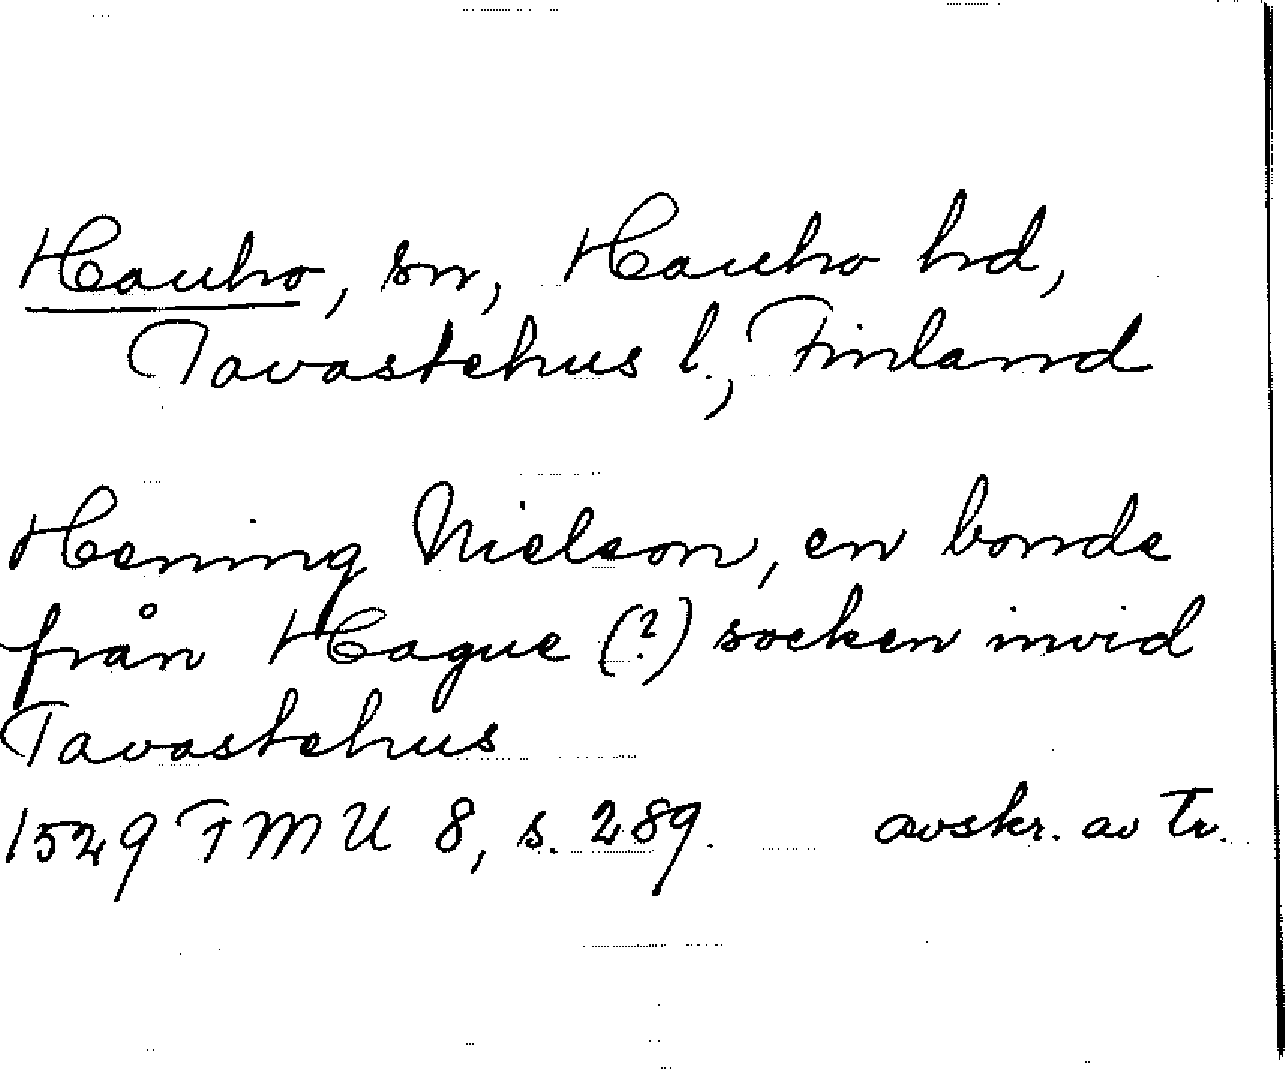 Hauho, sn, Hauho hd,
Tavastehus l., Finland
Hening Nielson, en bonde
från Hague (?) socken invid
Tavastehus
1529 FMU 8, s. 289. avskr. av tr.